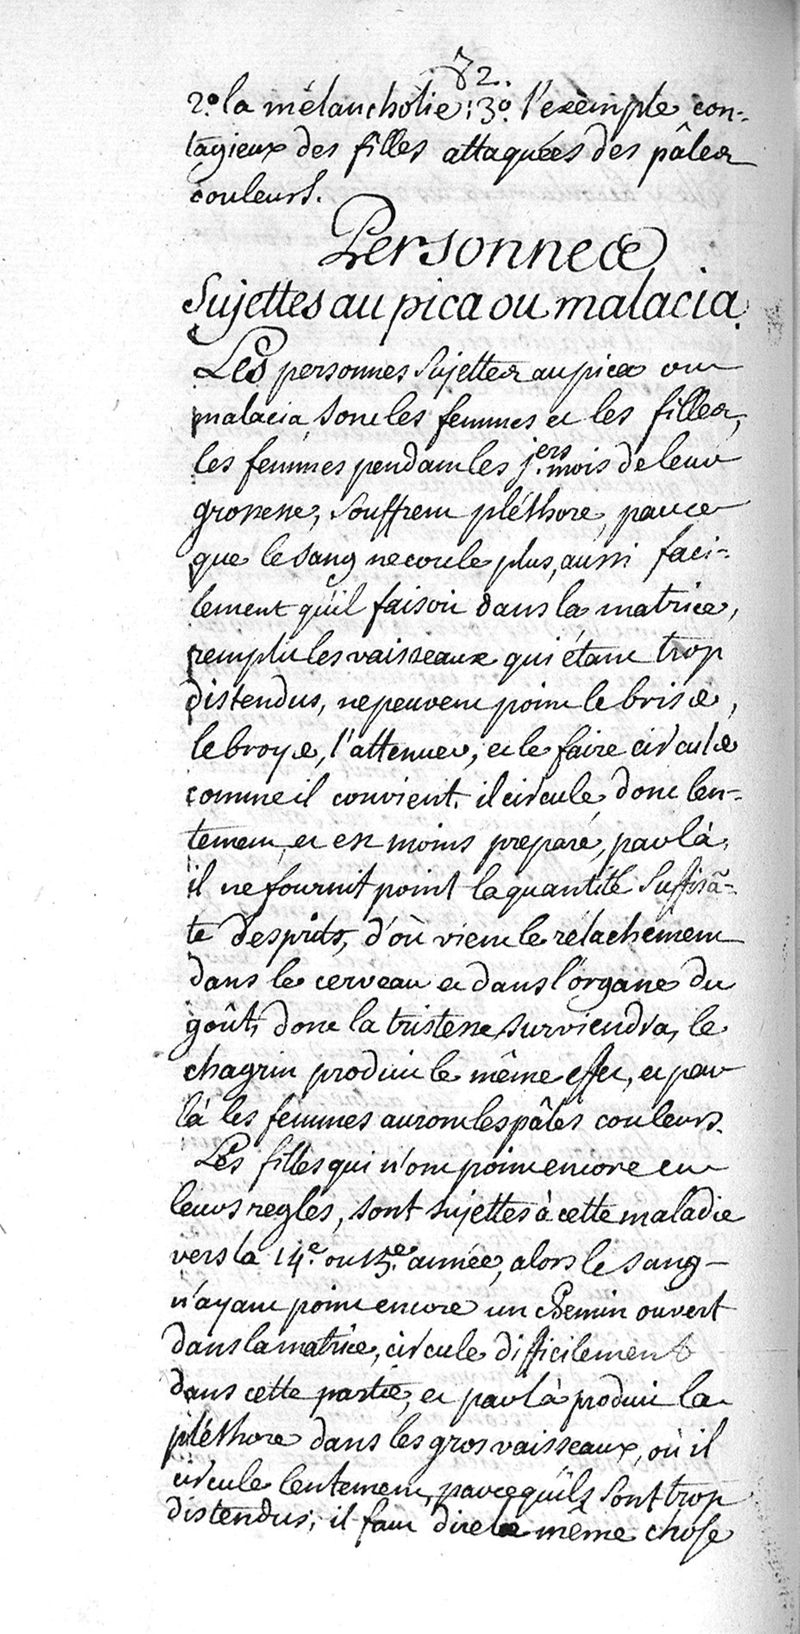 72.
2.° la mélancholie; 3.° l'exemple con-
tagieux des filles attaquées des pâles
couleurs.
Personnes
Sujettes au pica ou malacia.
Les personnes sujettes au pica ou
malacia, sont les femmes et les filles,
les femmes pendant les p.ers mois de leur
grossesse, souffrent pléthore, parce
que le sang ne coule plus, aussi faci-
lement qu'il faisoit dans la matrice,
remplit les vaisseaux qui étant trop
distendus, ne peuvent point le briser,
le broyer, l'attenuer, et le faire circuler
comme il convient. il circule donc len-
tement, et est moins preparé, par là,
il ne fournit point la quantité suffisã-
te d'esprits, d'où vient le relachement
dans le cerveau et dans l'organe du
goût, donc la tristesse surviendra, le
chagrin produit le même effet, et par
là les femmes auront les pâles couleurs.
Les filles qui n'ont point encore eu
leurs regles, sont sujettes à cette maladie
vers la 14.e ou 15.e année, alors le sang
n'ayant point encore un chemin ouvert
dans la matrice, circule difficilement
dans cette partie, et par là produit la
pléthore dans les gros vaisseaux, où il
circule lentement, parce qu'ils sont trop
distendus; il faut dire la même chose